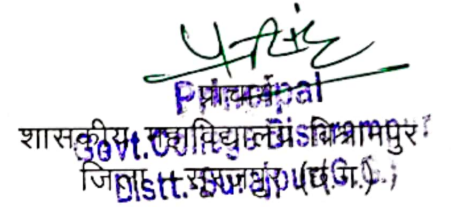 प्राचार्य
Principal
शासकीय महाविद्यालय बिश्रामपुर
Govt. College Bisrampur
जिला
Distt. Surajpur (C.G.)